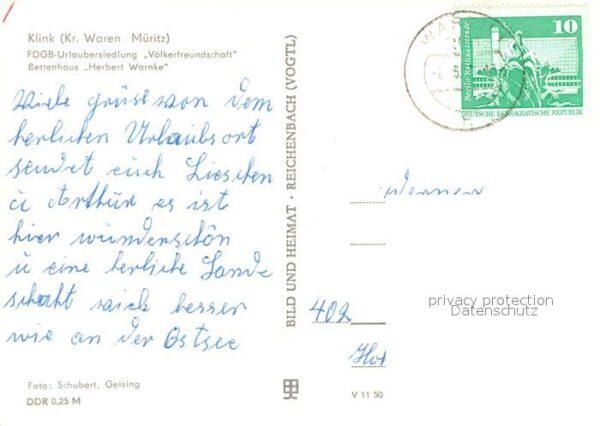 Klink (Kr. Waren Müritz)
FDGB-Urlaubersiedlung „Völkerfreundschaft"
Bettenhaus „Herbert Warnke"
Viele grüse von dem
herlichen Urlaubsort
sendet euch Lieschen
ü Arthur es ist
hier wunderschön
ü eine herliche Land
schaht viel besser
wie an der Ostsee
Foto: Schubert, Geising
DDR 0,25 M
BILD UND HEIMAT · REICHENBACH (VOGTL)
V 11 50
WAR
10
Berlin, Rathausstraße
DEUTSCHE DEMOKRATISCHE REPUBLIK
402
privacy protection
Datenschutz